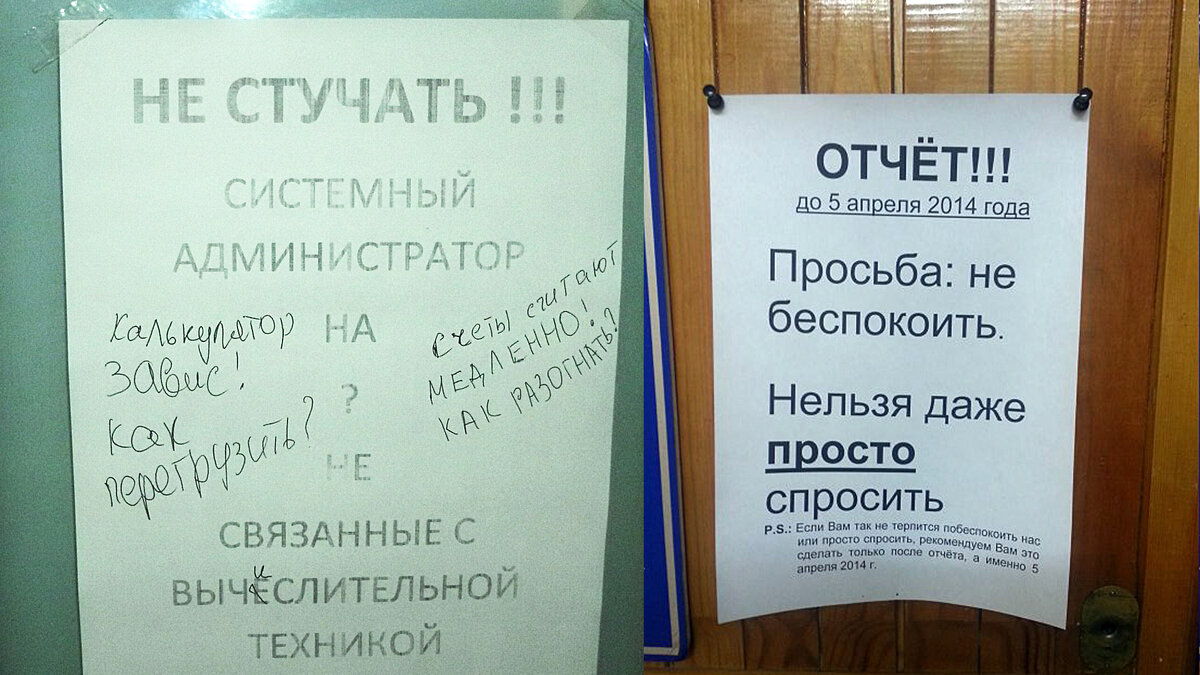 НЕ СТУЧАТЬ !!!
СИСТЕМНЫЙ
АДМИНИСТРАТОР
НА
?
НЕ
СВЯЗАННЫЕ С
ВЫЧЕСЛИТЕЛЬНОЙ
и
ТЕХНИКОЙ
Калькулятор
завис!
Как
перегрузить?
счеты считают
МЕДЛЕННО!
КАК РАЗОГНАТЬ?
ОТЧЁТ!!!
до 5 апреля 2014 года
Просьба: не
беспокоить.
Нельзя даже
просто
спросить
P.S.: Если Вам так не терпится побеспокоить нас
или просто спросить, рекомендуем Вам это
сделать только после отчёта, а именно 5
апреля 2014 г.